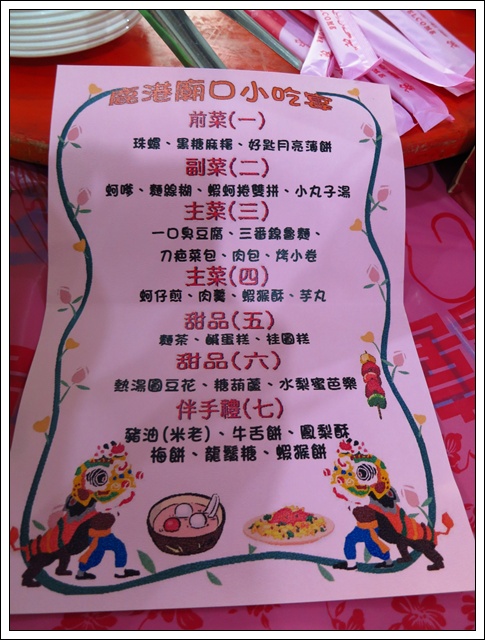 鹿港廟口小吃宴
前菜(一)
珠螺、黑糖麻糬、好匙月亮薄餅
副菜(二)
蚵嗲、麵線糊、蝦蚵捲雙拼、小丸子湯
主菜(三)
一口臭豆腐、三番錦魯麵、
刀疤菜包、肉包、烤小卷
主菜(四)
蚵仔煎、肉羹、蝦猴酥、芋丸
甜品(五)
麵茶、鹹蛋糕、桂圓糕
甜品(六)
熱湯圓豆花、糖葫蘆、水梨蜜芭樂
伴手禮(七)
豬油(米老)、牛舌餅、鳳梨酥
梅餅、龍鬚糖、蝦猴餅